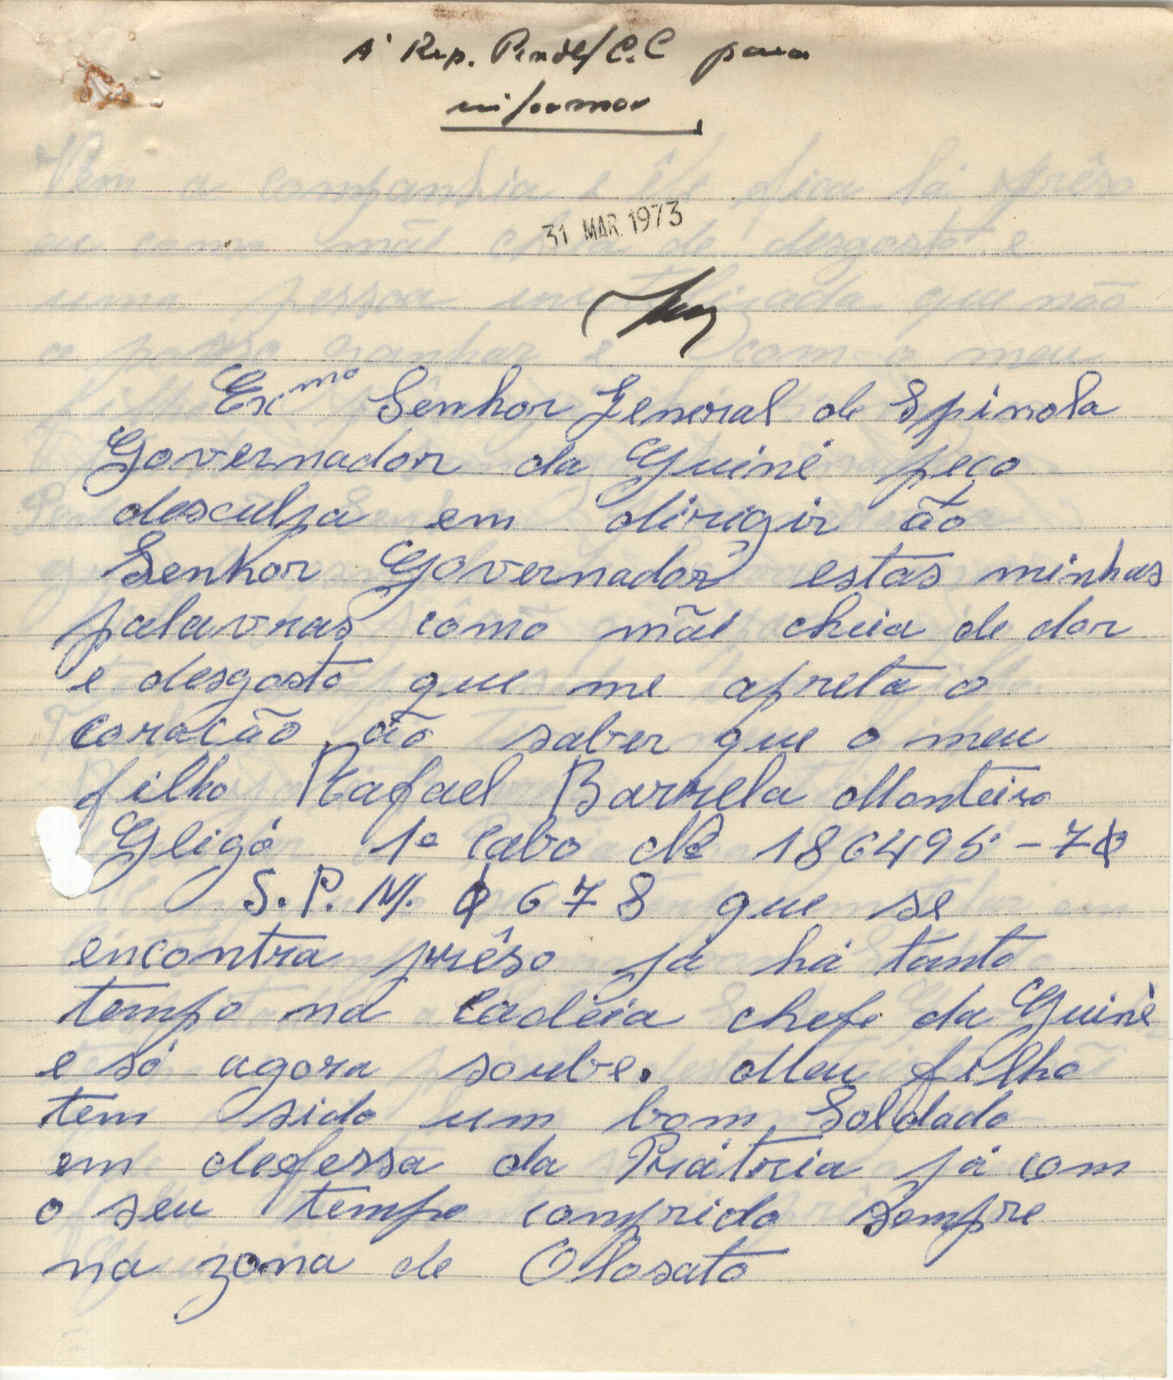 À Rep. Pess/C.C para
informar
31 MAR. 1973
Exmo Senhor General de Spinola
Governador da Guiné peço
desculpa em dirigir ão
Senhor Governador estas minhas
palavras como mãe cheia de dor
e desgosto que me apreta o
coração ão saber que o meu
filho Rafael Barrela Monteiro
Gligó 1º Cabo Nº 186495-70
S.P.M. 0678 que se
encontra prêso já há tanto
tempo na Cadeia chefe da Guiné
e só agora soube. Meu filho
tem sido um bom Soldado
em defessa da Prátria já com
o seu tempo comprido sempre
na zona de Olosato